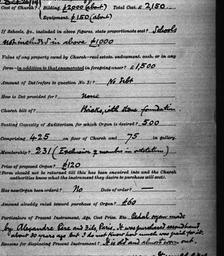 Cost of Church? Building $2000 (about) Total Cost $ 2,150
Equipment $150 (about)
If Schools, &c., included in above figures, state proportionate cost? Schools
not included in above $1000
Value of any property owned by Church—real estate, endowment, cash, or in any
form—in addition to that enumerated in foregoing answer? £1,500
Amount of Debt (refers to question No. 3)? No Debt
How is Debt provided for? None
Church built of? Bricks, with stone foundation
Seating Capacity of Auditorium, for which Organ is desired? 500
Comprising 425 on floor of Church and 75 in gallery.
Membership? 231 (Exclusive of members in
Price of proposed Organ? £120
Form should not be returned till this has been entered and the Church
Authorities know what the Instrument they desire to purchase will cost.
Has new Organ been ordered? No Date of order?
Amount already raised toward purchase of Organ? £60
Particulars of Present Instrument, Age, Cost Price, Etc. Pedal organ made
by Alexandre Père and Fils, Paris. It was purchased secondhand
about 30 years ago but I do not know how much was paid for it.
Reasons for displacing Present Instrument? It is old and almost worn out.